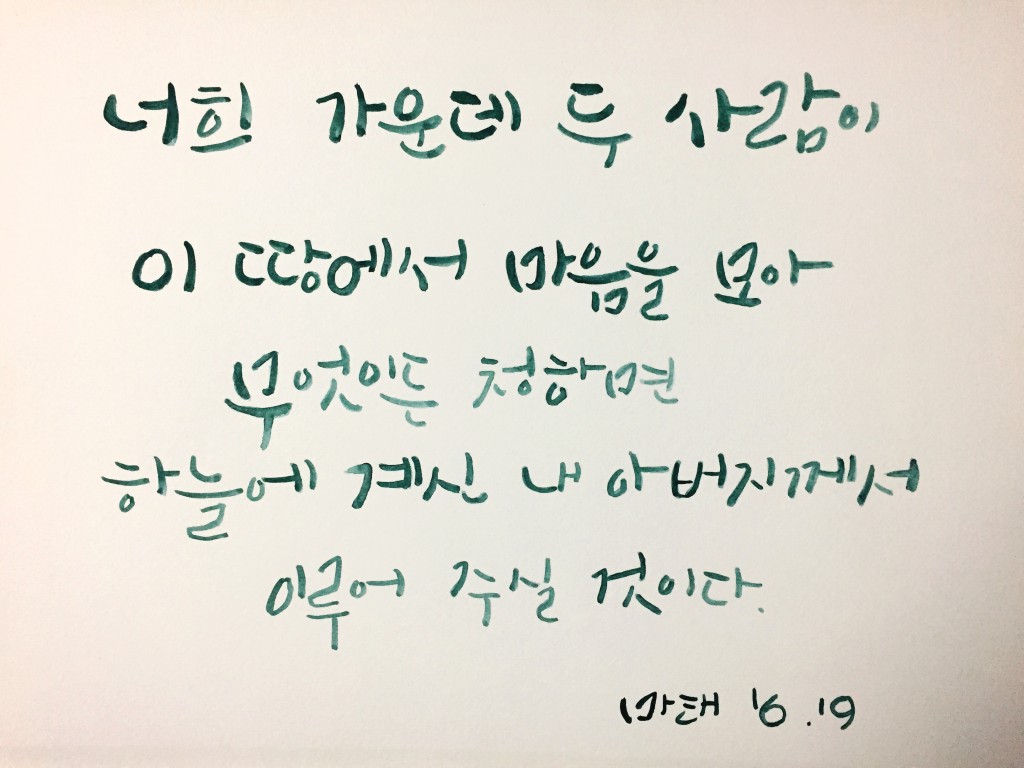 너희 가운데 두 사람이
이 땅에서 마음을 모아
무엇이든 청하면
하늘에 계신 내 아버지께서
이루어 주실 것이다.
마태 '6.19